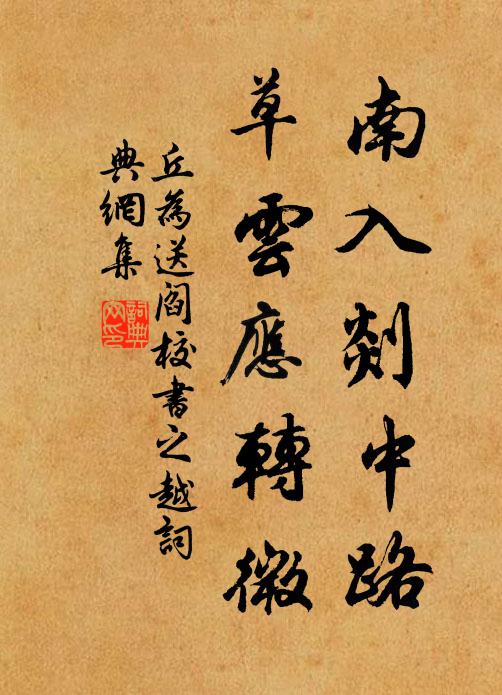 南入剡中路
草雲應轉微
丘為送閻校書之越詞
典網集
詞典
网印